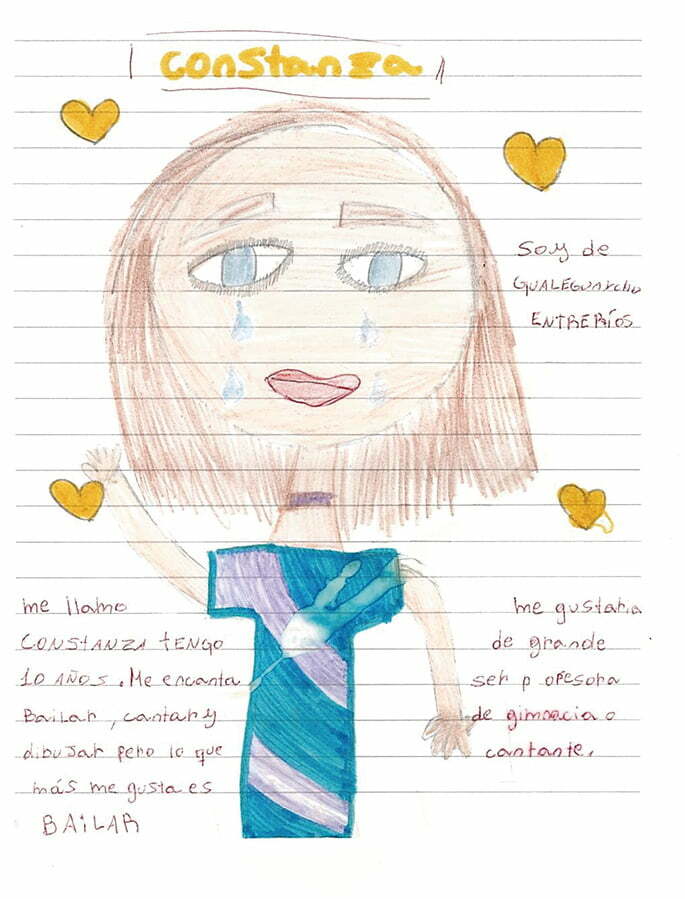 constanza
Soy de
GUALEGUAYCHU
ENTRERÍOS
me llamo
CONSTANZA TENGO
10 AÑOS. Me encanta
Bailar, cantar y
dibujar pero lo que
más me gusta es
BAILAR
me gustaria
de grande
ser p ofesora
de gimnacia o
cantante.